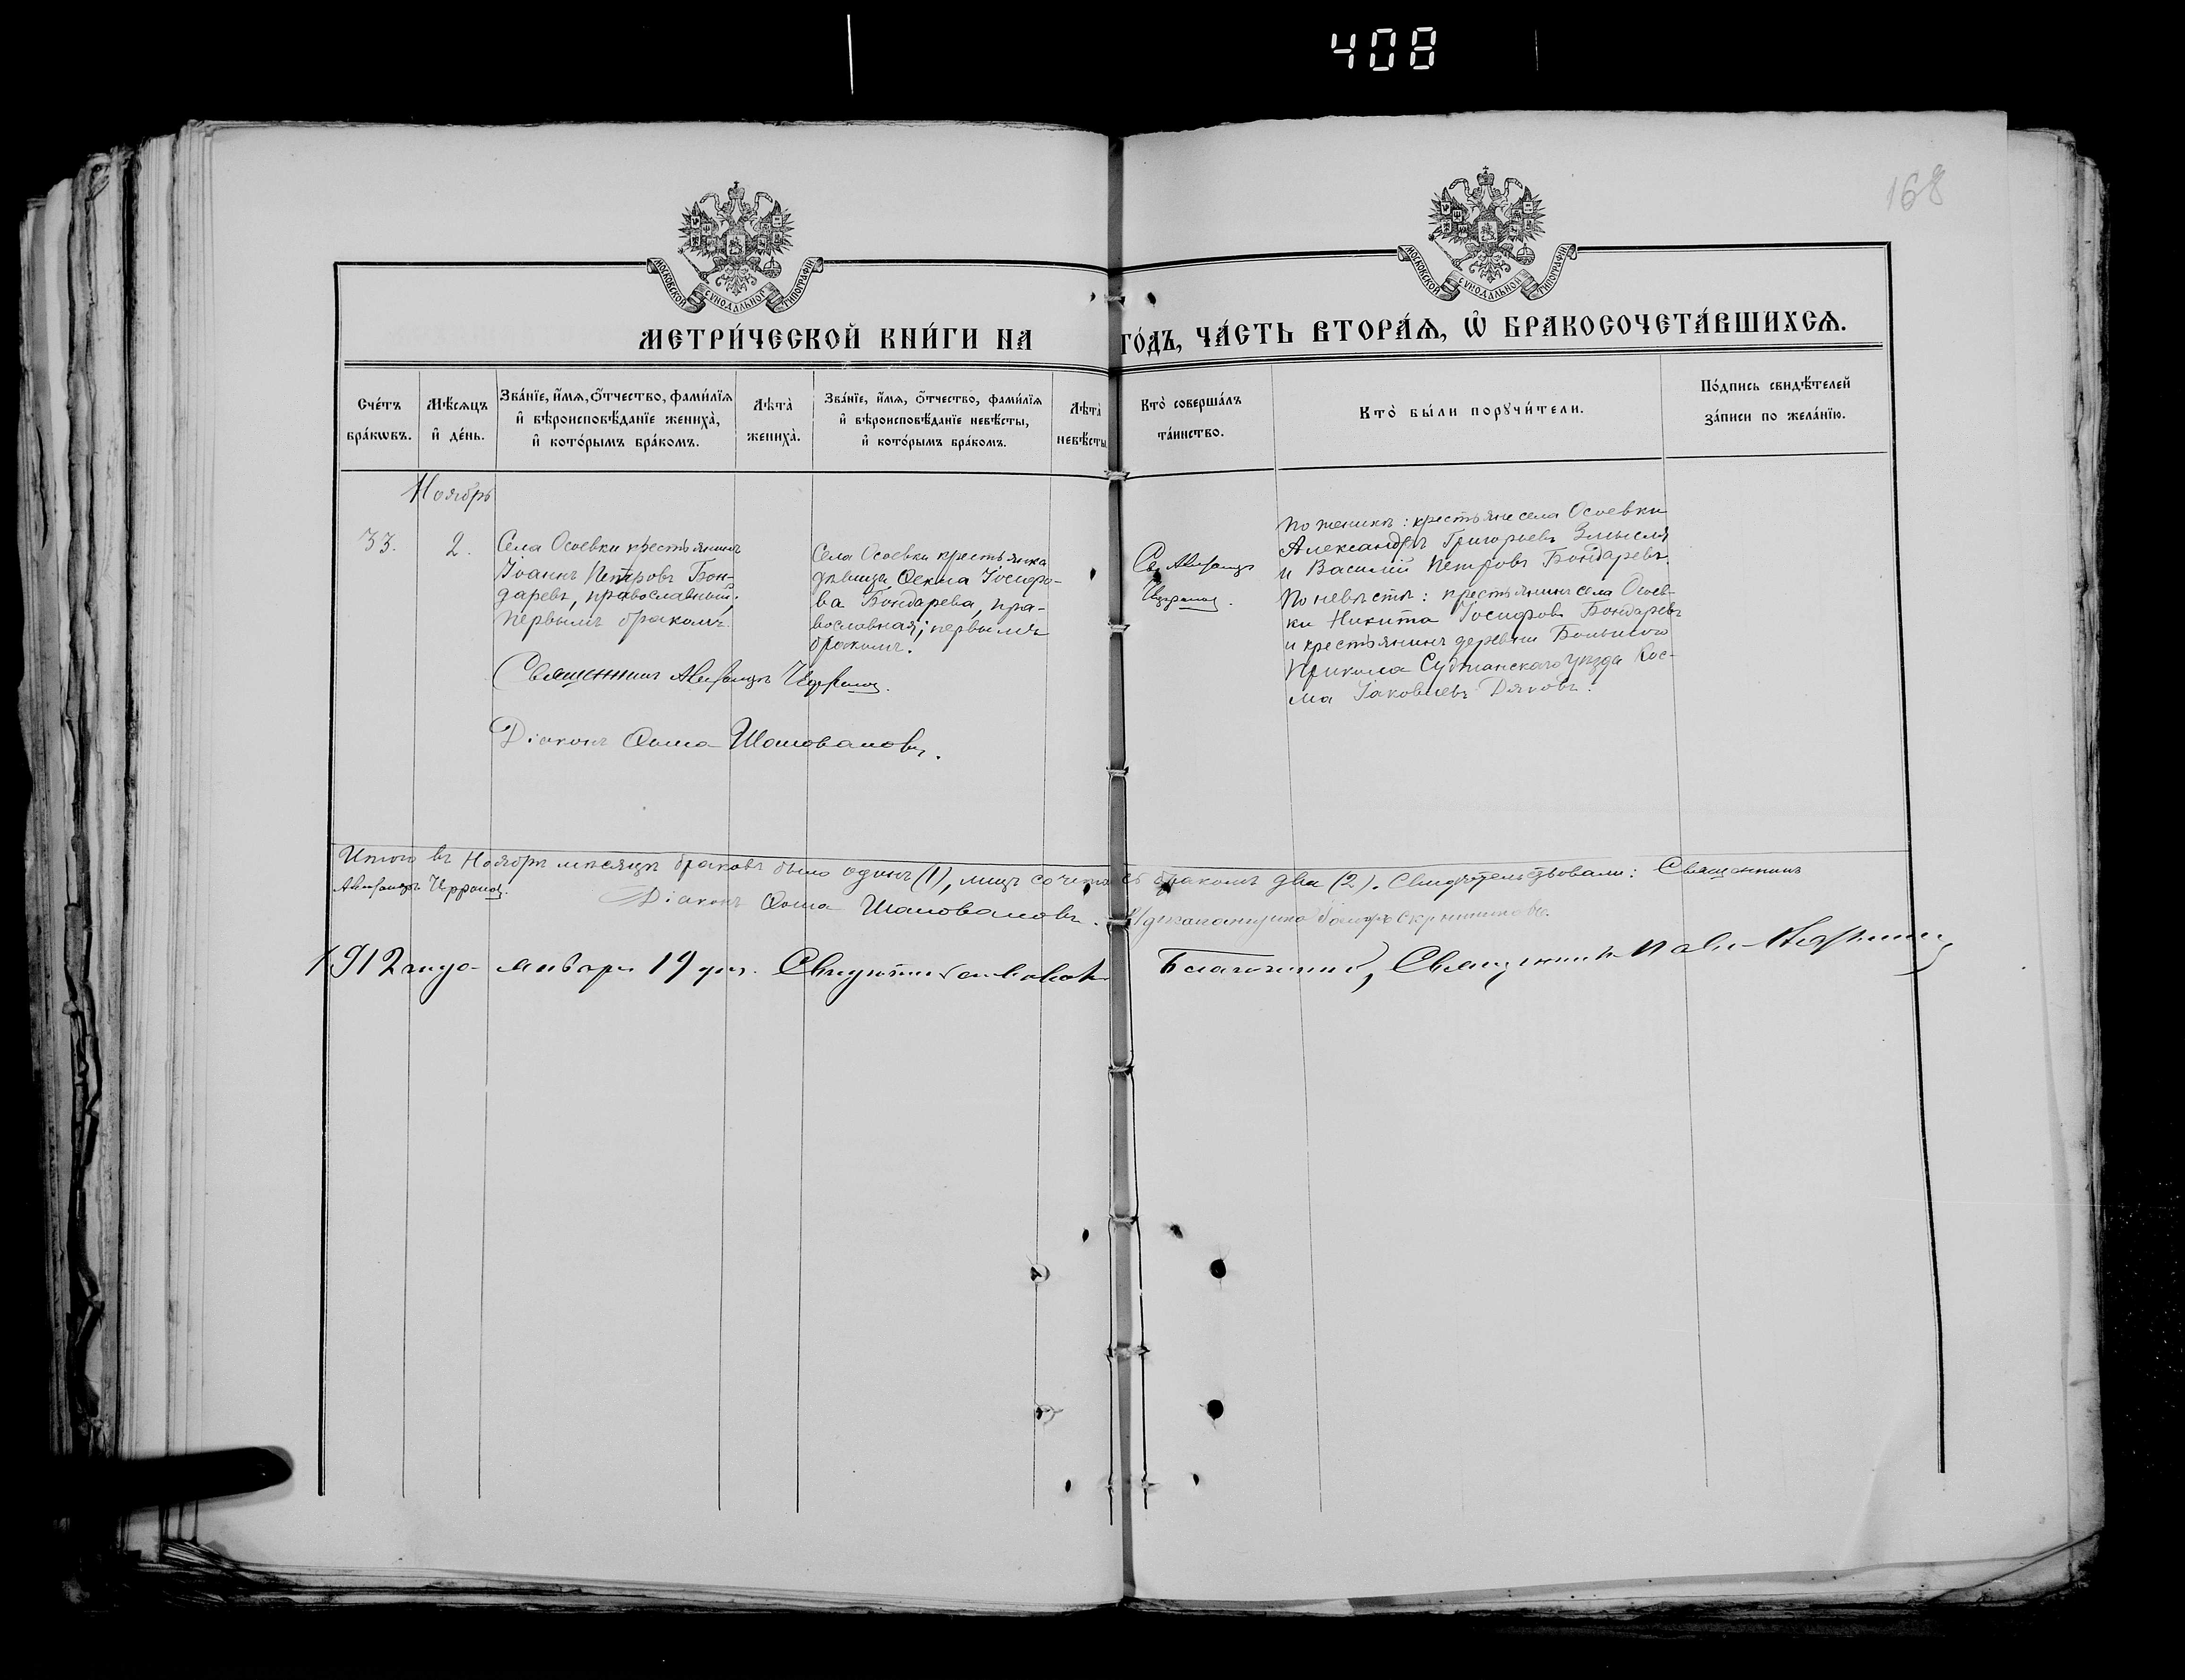 408
168
МОСКОВСКОЙ СѴНОДАЛЬНОЙ ТИПОГРАФІИ
МОСКОВСКОЙ СѴНОДАЛЬНОЙ ТИПОГРАФІИ
МЕТРИ́ЧЕСКОЙ КНИ́ГИ НА ГО́ДЪ, ЧА́СТЬ ВТОРА́Ѧ, Ѽ БРАКОСОЧЕТА́ВШИХСѦ.
Сче́тъ бра́кѡвъ.
Мѣ́сѧцъ и҆ де́нь.
Зва́нїе, и҆́мѧ, ѻ҆́тчество, фами́лїѧ и҆ вѣроисповѣ́данїе жениха̀, и҆ кото́рымъ бра́комъ.
Лѣта̀ жениха̀.
Зва́нїе, и҆́мѧ, ѻ҆́тчество, фами́лїѧ и҆ вѣроисповѣ́данїе невѣ́сты, и҆ кото́рымъ бра́комъ.
Лѣта̀ невѣ́сты
Кто̀ соверша́лъ та́инство.
Кто̀ бы́ли порꙋчи́тели.
По́дпись свидѣ́телей за́писи по жела́нїю.
Ноябрь
33.
2.
Села Осоевки крестьянинъ
Іоаннъ Петровъ Бон-
даревъ, православный;
первымъ бракомъ.
Села Осоевки крестьянка
дѣвица Ѳекла Іосифо-
ва Бондарева, пра-
вославная; первымъ
бракомъ.
Св. Александръ
По женихѣ: крестьяне села Осоевки
Александръ Григорьевъ
и Василій Петровъ Бондаревъ.
По невѣстѣ: крестьянинъ села Осоев-
ки Никита Іосифовъ Бондаревъ
и крестьянинъ деревни Большого
Прикола Суджанскаго уѣзда Кос-
ма Іаковлевъ Дяковъ.
Священникъ Александръ
Діаконъ Ѳома Шаповаловъ.
Итого въ Ноябрѣ мѣсяцѣ браковъ было одинъ (1), лицъ бракомъ два (2). Свидѣтельствовали: Священникъ
Александръ
Діаконъ Ѳома Шаповаловъ.
1912 года января 19 дня. Свидѣтельствовалъ Благочинный, Священникъ